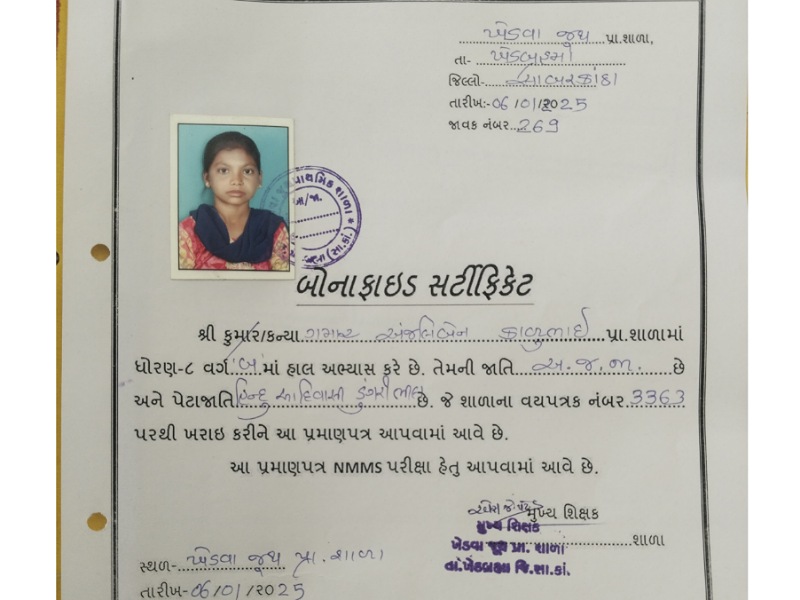 ખેડવા જુથ પ્રા.શાળા,
તા- ખેડબ્રહ્મા
જિલ્લો- સાબરકાંઠા
તારીખ:- 06/01/2025
જાવક નંબર...269
બોનાફાઇડ સર્ટીફિકેટ
શ્રી કુમાર/કન્યા ગમાર અંજલિબેન કાળુભાઈ પ્રા.શાળામાં
ધોરણ-૮ વર્ગ 'બ' માં હાલ અભ્યાસ કરે છે. તેમની જાતિ અ.જ.જા. છે
અને પેટાજાતિ હિન્દુ આદિવાસી ડુંગરી ભીલ છે. જે શાળાના વયપત્રક નંબર 3363
પરથી ખરાઇ કરીને આ પ્રમાણપત્ર આપવામાં આવે છે.
આ પ્રમાણપત્ર NMMS પરીક્ષા હેતુ આપવામાં આવે છે.
મુખ્ય શિક્ષક
મુખ્ય શિક્ષક
શાળા
ખેડવા જૂથ પ્રા. શાળા
તા.ખેડબ્રહ્મા જિ.સા.કાં.
સ્થળ- ખેડવા જુથ પ્રા. શાળા
તારીખ-06/01/2025